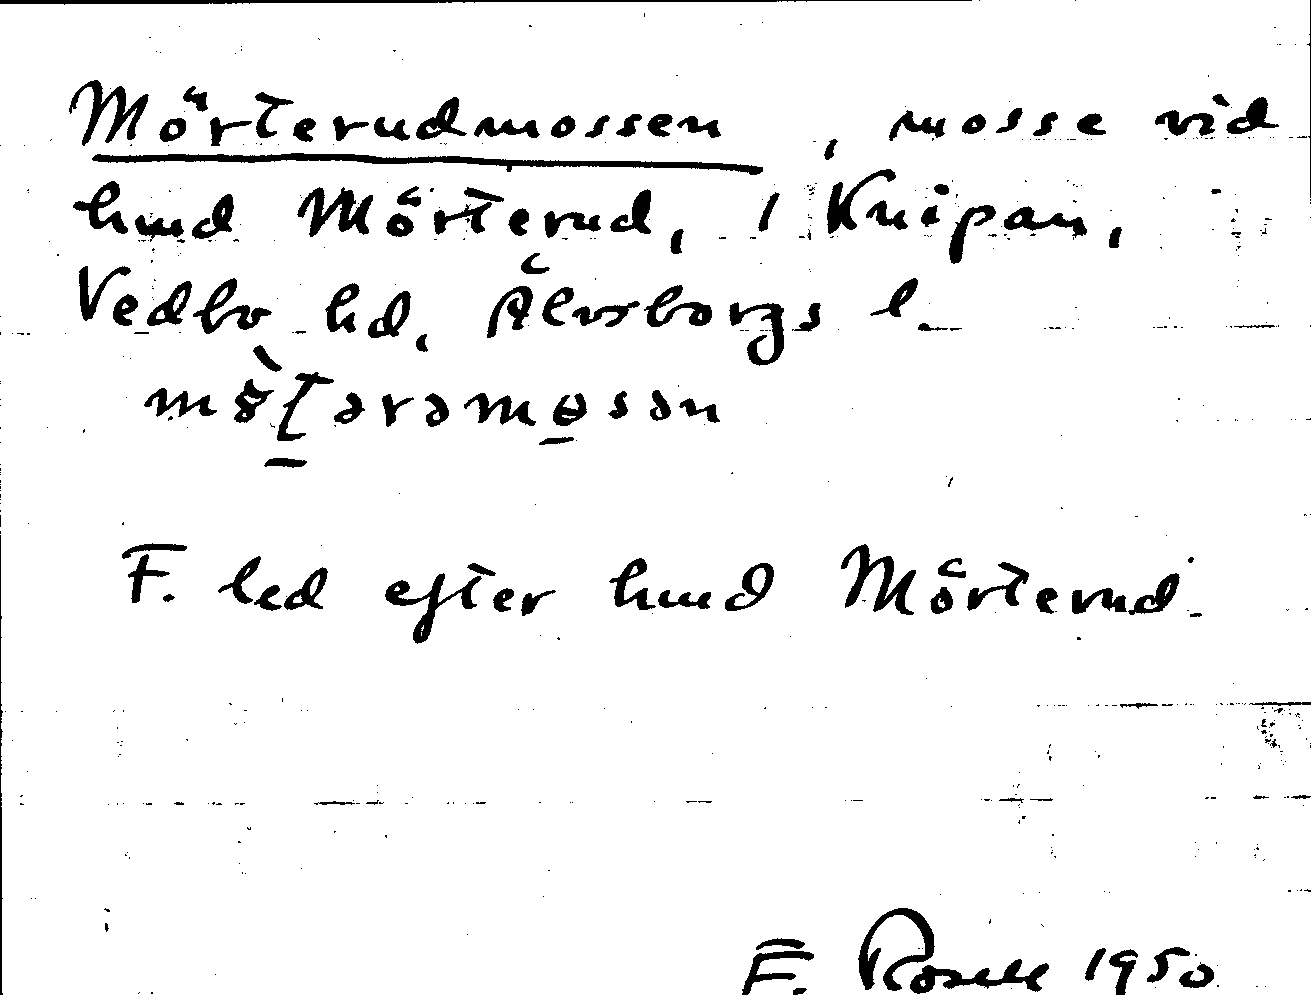 Mörterudmossen, mosse vid
hmd Mörterud, i Knipan,
Vedbo hd, Älvsborgs l.
F. led efter hmd Mörterud.
E. Rosell 1950